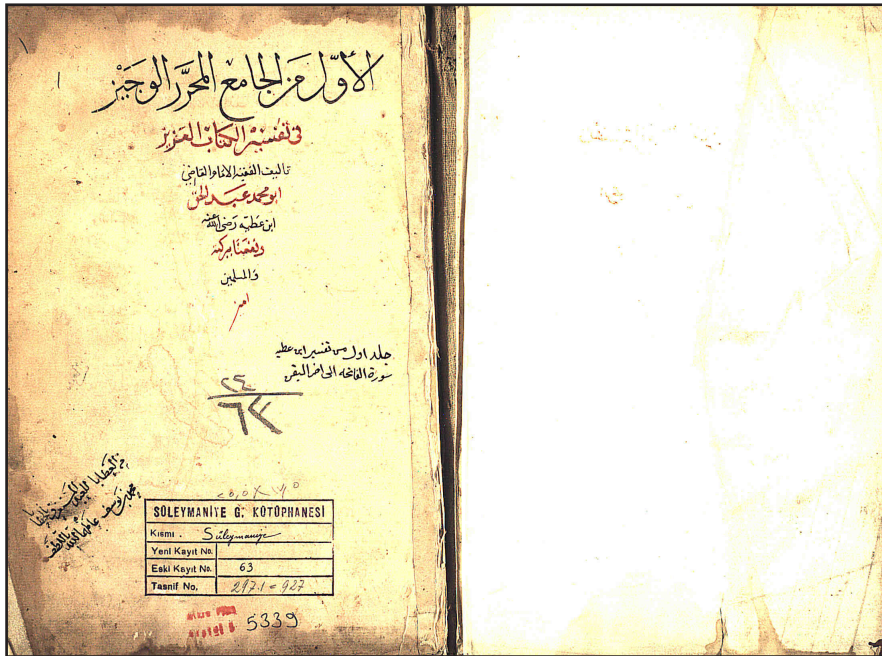 الأول من الجامع المحرر الوجيز
في تفسير الكتاب العزيز
تاليف الفقيه الامام القاضي
ابو محمد عبد الحق
ابن عطيه رضى الله عنه
ونفعنا ببركته
والمسلمين
امين
جلد اول من تفسير ابن عطيه
سورة الفاتحه الى اخر البقره
٦٣
SÜLEYMANİYE G. KÜTÜPHANESİ
Kısmı. Süleymaniye
Yeni Kayıt No.
Eski Kayıt No. 63
Tasnif No. 297.1 = 927
5339